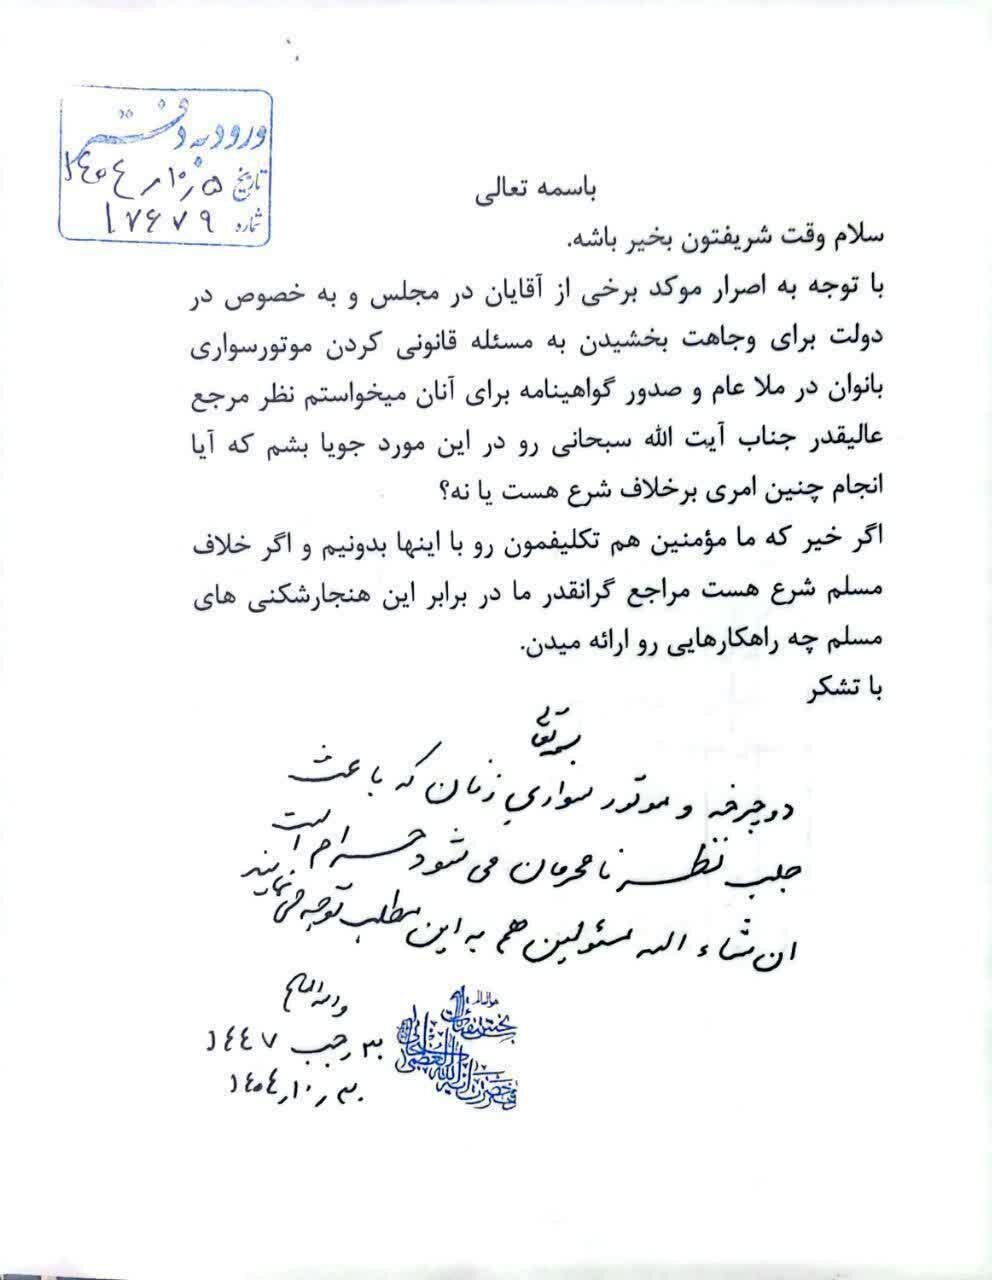 ورود به دفتر
تاریخ ۱۴۰۴/۱۰/۵
شماره ۱۷۶۷۹
باسمه تعالی
سلام وقت شریفتون بخیر باشه.
با توجه به اصرار موکد برخی از آقایان در مجلس و به خصوص در
دولت برای وجاهت بخشیدن به مسئله قانونی کردن موتورسواری
بانوان در ملا عام و صدور گواهینامه برای آنان میخواستم نظر مرجع
عالیقدر جناب آیت الله سبحانی رو در این مورد جویا بشم که آیا
انجام چنین امری برخلاف شرع هست یا نه؟
اگر خیر که ما مؤمنین هم تکلیفمون رو با اینها بدونیم و اگر خلاف
مسلم شرع هست مراجع گرانقدر ما در برابر این هنجارشکنی های
مسلم چه راهکارهایی رو ارائه میدن.
با تشکر
بسمه تعالی
دوچرخه و موتور سواری زنان که باعث
جلب نظر نامحرمان می شود حرام است
ان شاء الله مسئولین هم به این مطلب توجه می نمایند
والله العالم
رجب ۱۴۴۷
بخش استفتائات
حضرت آیة الله العظمی سبحانی